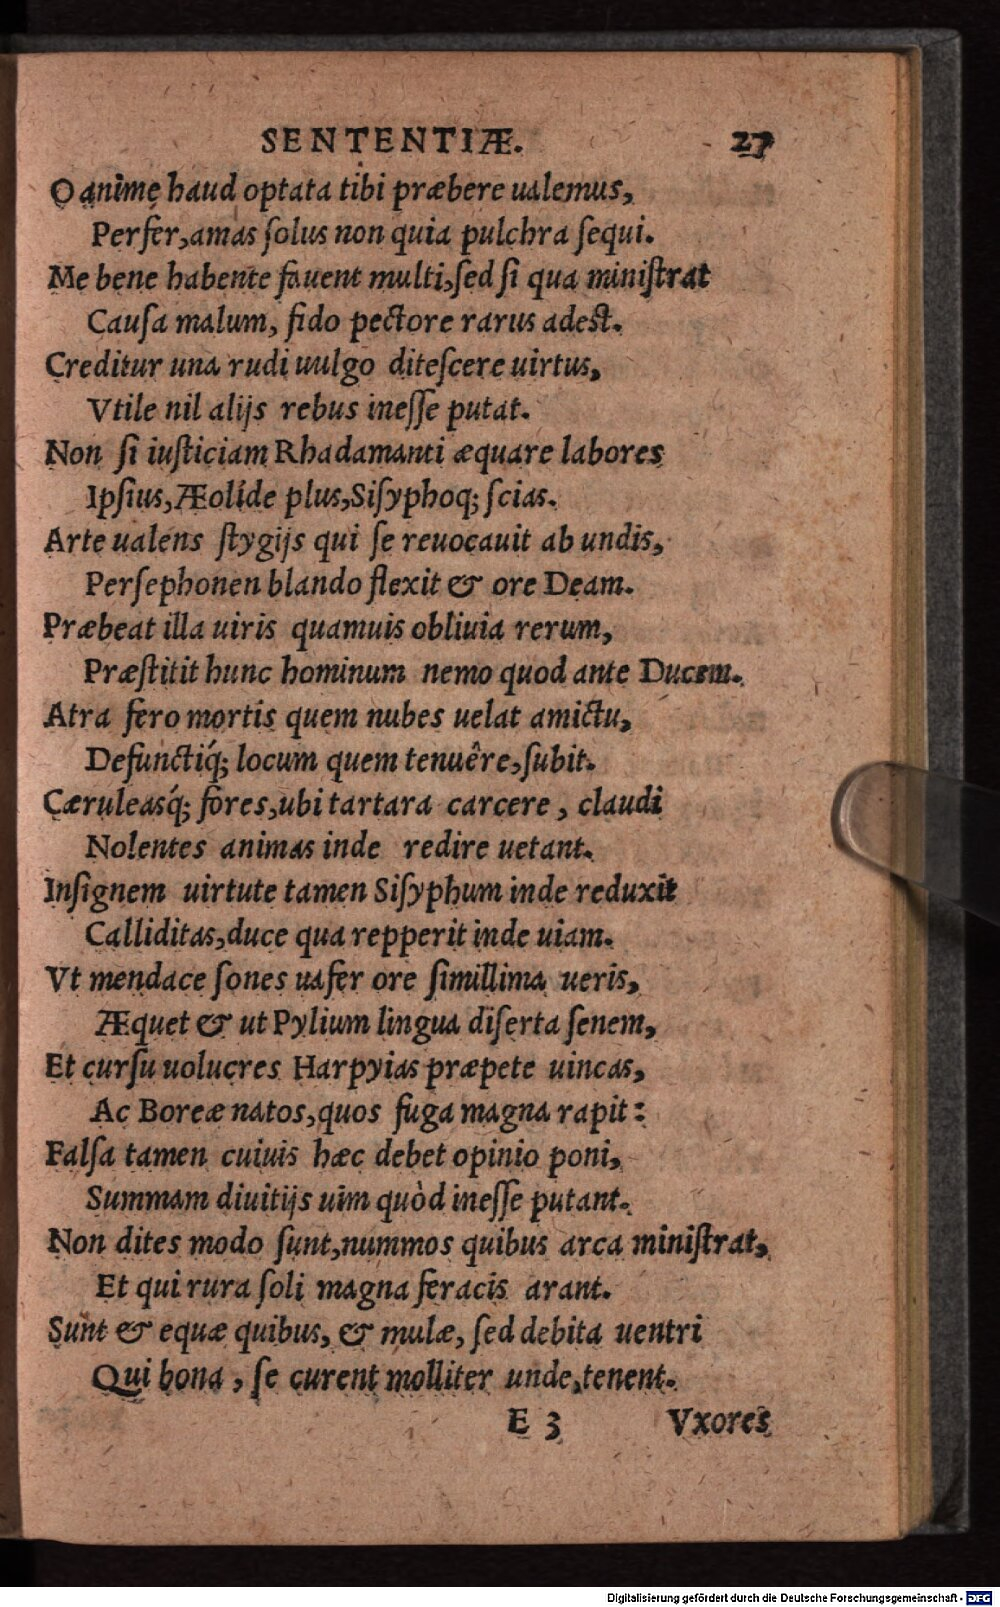 SENTENTIÆ. 27
O anime haud optata tibi præbere ualemus,
Perfer, amas ſolus non quia pulchra ſequi.
Me bene habente fauent multi, ſed ſi qua miniſtrat
Cauſa malum, fido pectore rarus adeſt.
Creditur una rudi uulgo diteſcere uirtus,
Vtile nil alijs rebus ineſſe putat.
Non ſi iuſticiam Rhadamanti æquare labores
Ipſius, Æolide plus, Siſyphoq; ſcias.
Arte ualens ſtygijs qui ſe reuocauit ab undis,
Perſephonen blando flexit & ore Deam.
Præbeat illa uiris quamuis obliuia rerum,
Præſtitit hunc hominum nemo quod ante Ducem.
Atra fero mortis quem nubes uelat amictu,
Defunctiq́; locum quem tenuêre, ſubit.
Cæruleasq́; fores, ubi tartara carcere, claudi
Nolentes animas inde redire uetant.
Inſignem uirtute tamen Siſyphum inde reduxit
Calliditas, duce qua repperit inde uiam.
Vt mendace ſones uafer ore ſimillima ueris,
Æquet & ut Pylium lingua diſerta ſenem,
Et curſu uolucres Harpyias præpete uincas,
Ac Boreæ natos, quos fuga magna rapit:
Falſa tamen cuiuis hæc debet opinio poni,
Summam diuitijs uim quòd ineſſe putant.
Non dites modo ſunt, nummos quibus arca miniſtrat,
Et qui rura ſoli magna feracis arant.
Sunt & equæ quibus, & mulæ, ſed debita uentri
Qui bona, ſe curent molliter unde, tenent.
E 3 Vxores
Digitalisierung gefördert durch die Deutsche Forschungsgemeinschaft - DFG